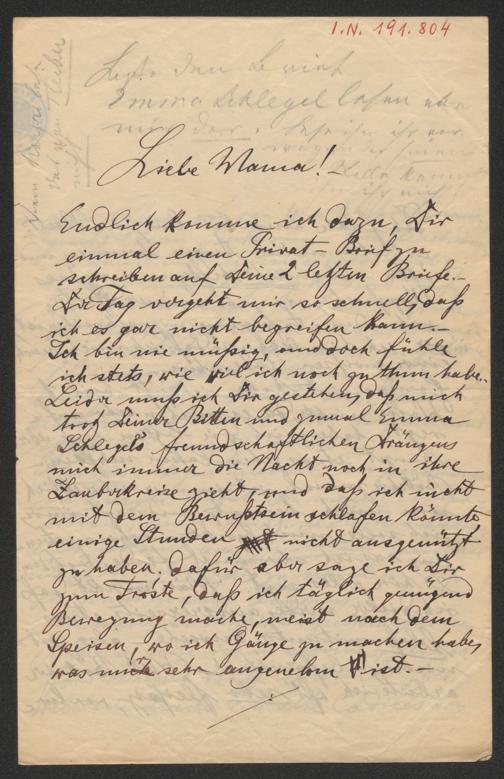 I.N. 191.804
den Brief
Emma Schlegel lesen
Liebe Mama! –
Endlich komme ich dazu, Dir
einmal einen Privat-Brief zu
schreiben auf Deine 2 letzten Briefe. –
Der Tag vergeht mir so schnell, daß
ich es gar nicht begreifen kann. –
Ich bin nie müßig, und doch fühle
ich stets, wie viel ich noch zu thun habe. –
Leider muß ich Dir gestehen, daß mich
trotz Deiner Bitten und zumal Emma
Schlegel's freundschaftlichen Drängens
mich immer die Nacht noch in ihre
Zauberkreise zieht, und daß ich nicht
mit dem Bewußtsein schlafen könnte
einige Stunden nicht ausgenützt
zu haben. Dafür aber sage ich Dir
zum Troste, daß ich täglich genügend
Bewegung mache, meist nach dem
Speisen, wo ich Gänge zu machen habe,
was mir sehr angenehm ist. –